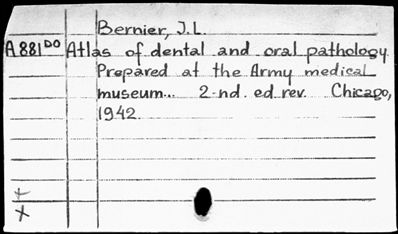 Bernier, J.L.
A881DO Atlas of dental and oral pathology
Prepared at the Army medical
museum... 2-nd. ed rev. Chicago,
1942.